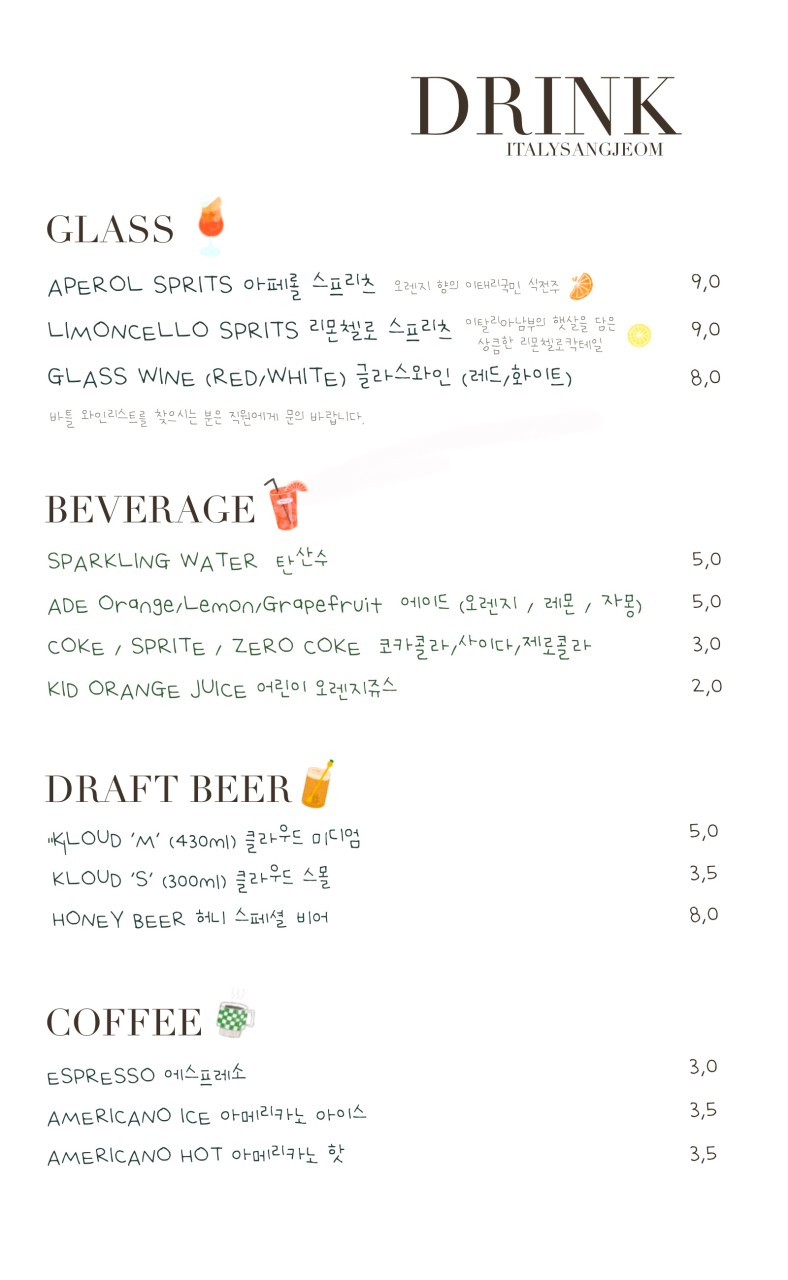 DRINK
ITALYSANGJEOM
GLASS
APEROL SPRITS 아페롤 스프리츠 오렌지 향의 이태리국민 식전주 9,0
LIMONCELLO SPRITS 리몬첼로 스프리츠 이탈리아남부의 햇살을 담은 9,0
상큼한 리몬첼로칵테일
GLASS WINE (RED/WHITE) 글라스와인 (레드/화이트) 8,0
바틀 와인리스트를 찾으시는 분은 직원에게 문의 바랍니다.
BEVERAGE
SPARKLING WATER 탄산수 5,0
ADE Orange/Lemon/Grapefruit 에이드 (오렌지 , 레몬 , 자몽) 5,0
COKE / SPRITE / ZERO COKE 코카콜라/사이다/제로콜라 3,0
KID ORANGE JUICE 어린이 오렌지쥬스 2,0
DRAFT BEER
"KLOUD 'M' (430ml) 클라우드 미디엄 5,0
KLOUD 'S' (300ml) 클라우드 스몰 3,5
HONEY BEER 허니 스페셜 비어 8,0
COFFEE
ESPRESSO 에스프레소 3,0
AMERICANO ICE 아메리카노 아이스 3,5
AMERICANO HOT 아메리카노 핫 3,5